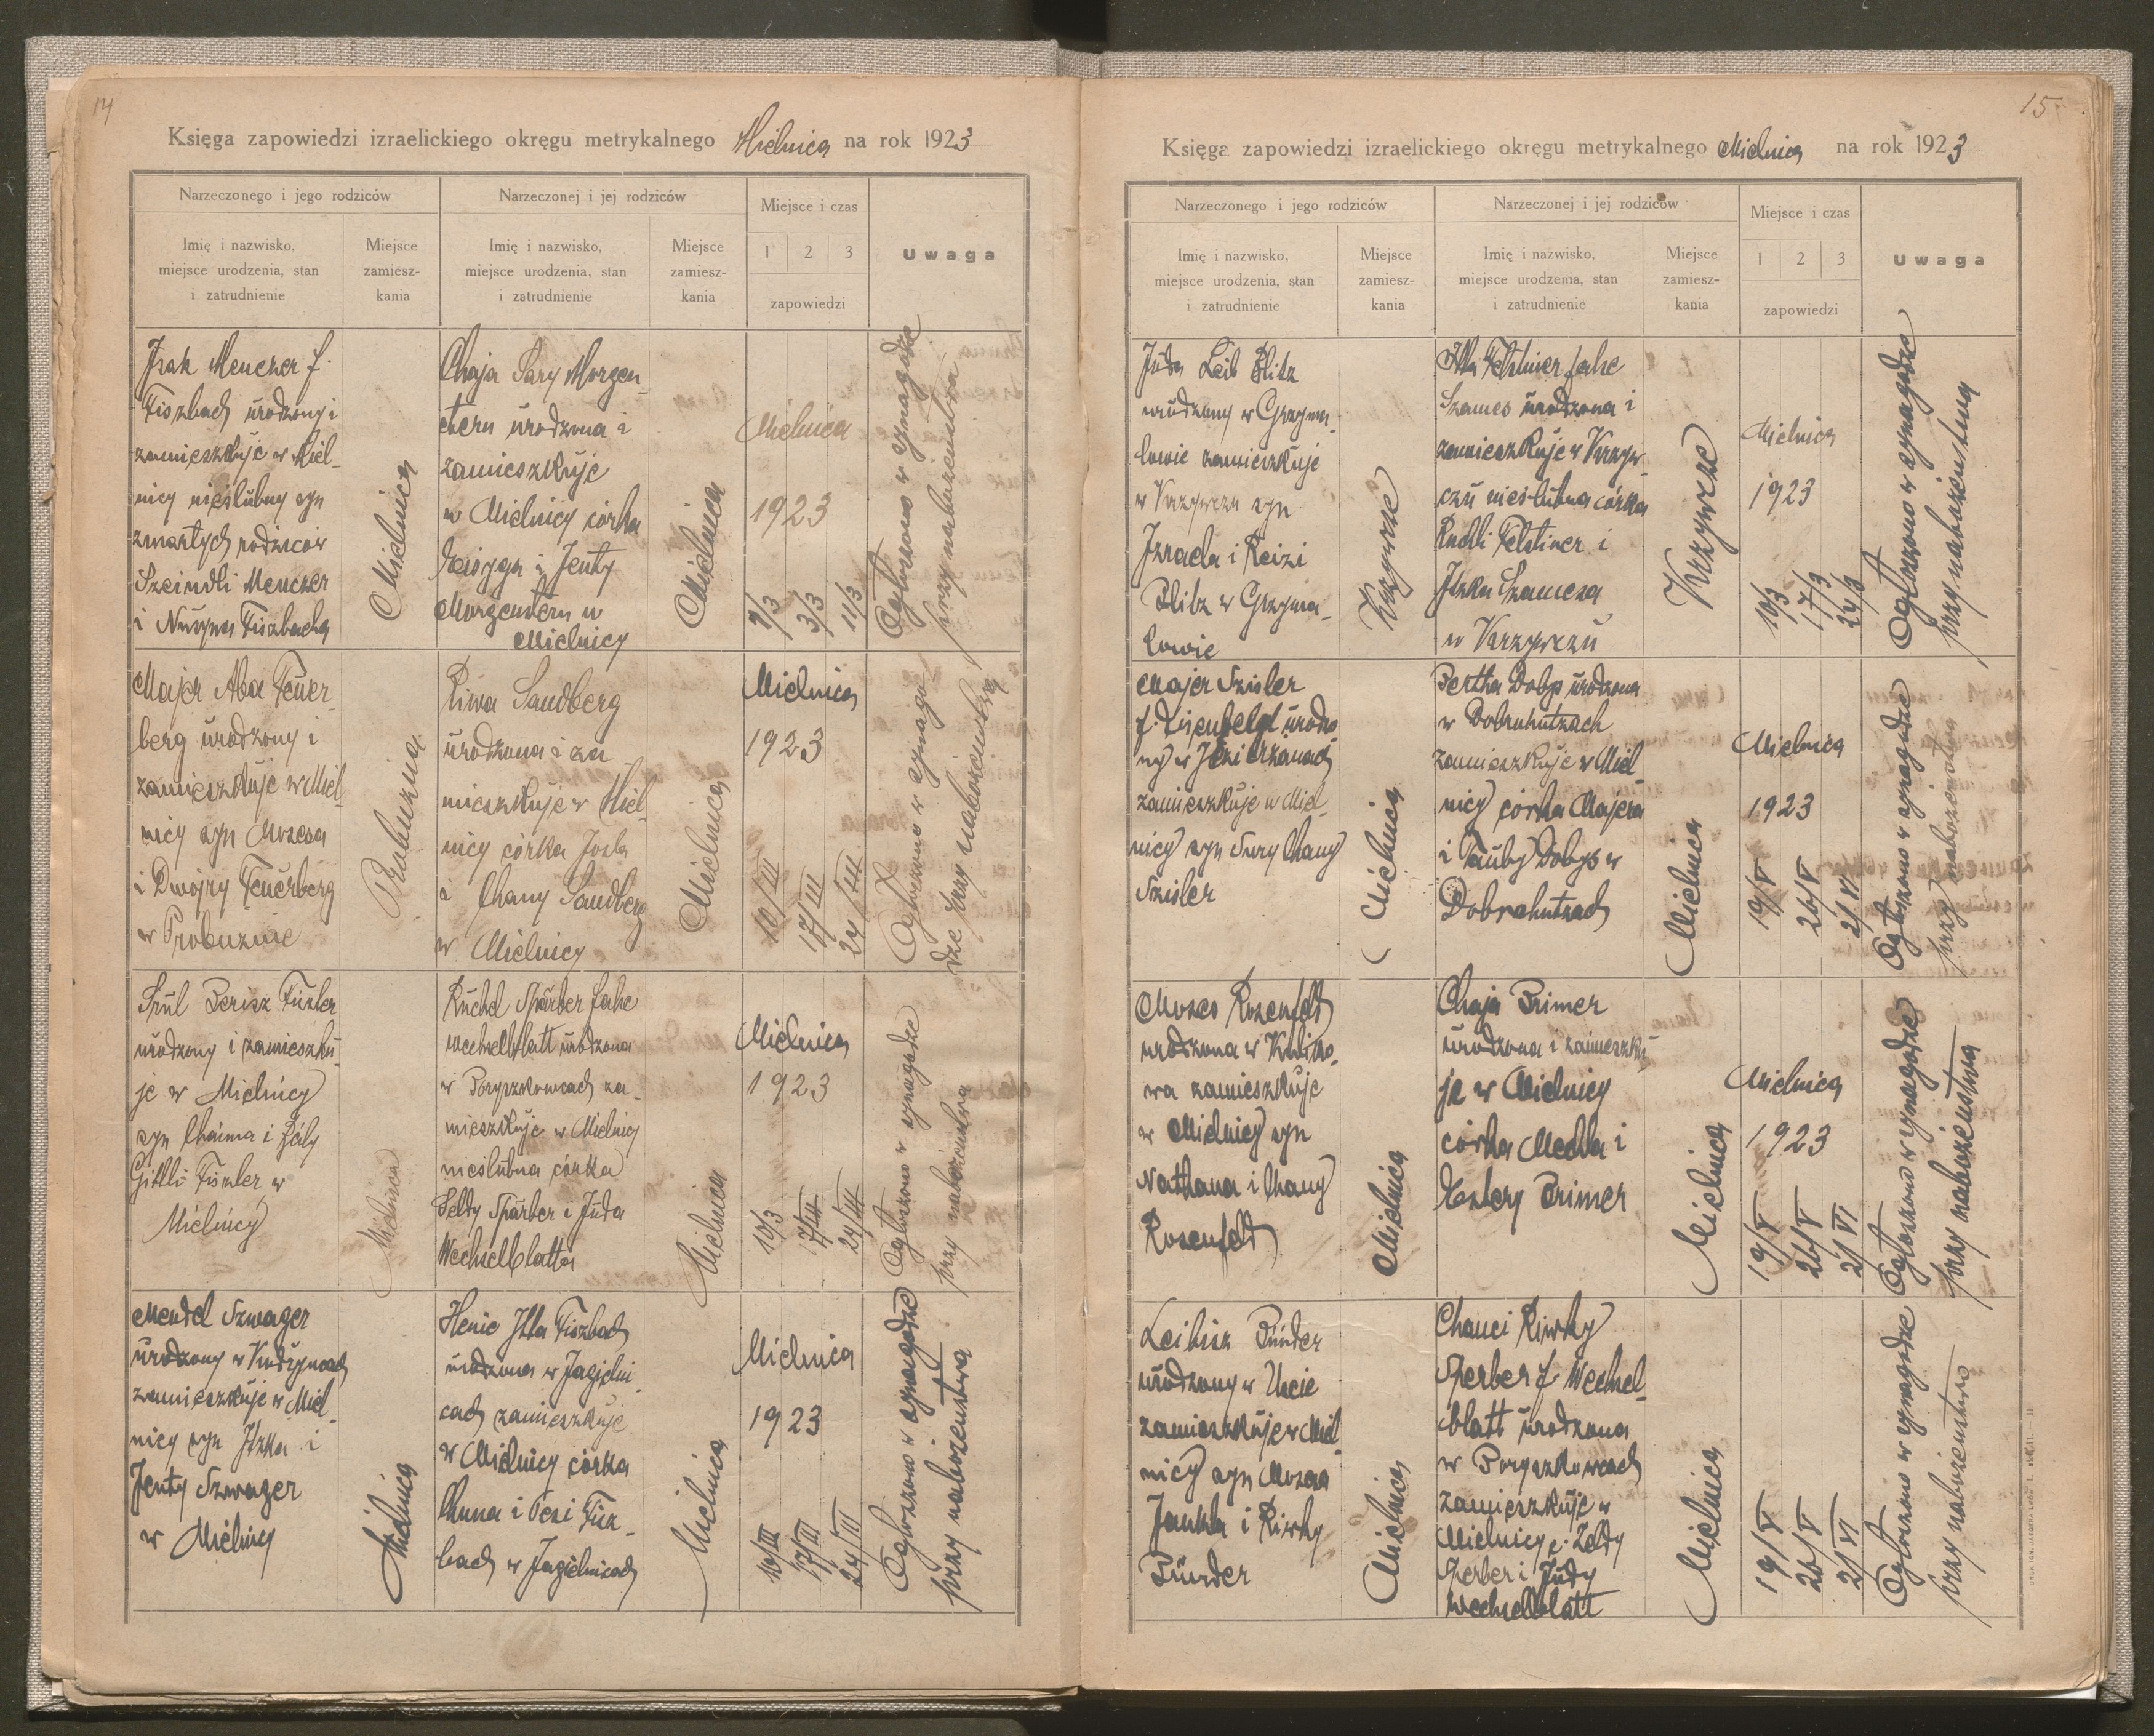 14
Księga zapowiedzi izraelickiego okręgu metrykalnego Mielnica na rok 1923
Narzeczonego i jego rodziców
Narzeczonej i jej rodziców
Miejsce i czas
Uwaga
Imię i nazwisko,
miejsce urodzenia, stan
i zatrudnienie
Miejsce
zamiesz-
kania
Imię i nazwisko,
miejsce urodzenia, stan
i zatrudnienie
Miejsce
zamiesz-
kania
1 2 3
zapowiedzi
Izak Menczer f.
Fiszbach urodzony i
zamieszkuje w Miel-
nicy nieślubny syn
zmarłych rodziców
Szeindli Menczer
i Nusyna Fiszbacha
Mielnica
Chaja Sary Morgen-
stern urodzona i
zamieszkuje
w Mielnicy córka
i Jenty
Morgenstern w
Mielnicy
Mielnica
Mielnica
1923
3/3
11/3
Ogłoszono w synagodze
przy nabożeństwa
Majer Aba Feuer-
berg urodzony i
zamieszkuje w Miel-
nicy syn Mozesa
i Dwojry Feuerberg
w Probuznie
Probuzna
Riwa Sandberg
urodzona i za-
mieszkuje w Miel-
nicy córka Josla
i Chany Sandberg
w Mielnicy
Mielnica
Mielnica
1923
10/III
17/III
24/III
Ogłoszono w synago-
dze przy nabożeństwa
Srul Berisz Fiszler
urodzony i zamieszku-
je w Mielnicy
syn Chaima i
Gittli Fiszler w
Mielnicy
Mielnica
Ruchel Sparber false
Wechselblatt urodzona
w Boryszkowcach za-
mieszkuje w Mielnicy
nieślubna córka
Seldy Sparber i Juda
Wechselblatta
Mielnica
Mielnica
1923
10/3
17/III
24/III
Ogłoszono w synagodze
przy nabożeństwa
Mendel Szwager
urodzony w Kudryncach
zamieszkuje w Miel-
nicy syn Itzka i
Jenty Szwager
w Mielnicy
Mielnica
Henie Itta Fiszbach
urodzona w Jagielni-
cach zamieszkuje
w Mielnicy córka
Chuna i Pesi Fisz-
bach w Jagielnicach
Mielnica
Mielnica
1923
10/III
17/III
24/III
Ogłoszono w synagodze
przy nabożeństwa
15
Księga zapowiedzi izraelickiego okręgu metrykalnego Mielnica na rok 1923
Narzeczonego i jego rodziców
Narzeczonej i jej rodziców
Miejsce i czas
Uwaga
Imię i nazwisko,
miejsce urodzenia, stan
i zatrudnienie
Miejsce
zamiesz-
kania
Imię i nazwisko,
miejsce urodzenia, stan
i zatrudnienie
Miejsce
zamiesz-
kania
1 2 3
zapowiedzi
Juda Leib Blitz
urodzony w Grzyma-
łowie zamieszkuje
w Krzywczu syn
Izraela i Reizi
Blitz w Grzyma-
łowie
Krzywcze
Itta Felstiner false
Szames urodzona i
zamieszkuje w Krzyw-
czu nieślubna córka
Ruchli Felstiner i
Itzka Szamesa
w Krzywczu
Krzywcze
Mielnica
1923
10/3
17/3
24/3
Ogłoszono w synagodze
przy nabożeństwa
Majer Szisler
f. urodzo-
ny w Jezierzanach
zamieszkuje w Miel-
nicy syn Sury Chany
Szisler
Mielnica
Bertha Dobys urodzona
w Dobrohutzach
zamieszkuje w Miel-
nicy córka Majera
i Tauby Dobys w
Dobrohutzach
Mielnica
Mielnica
1923
19/V
26/V
2/VI
Ogłoszono w synagodze
przy nabożeństwa
Mozes Rozenfeld
urodzona w
zamieszkuje
w Mielnicy syn
Nathana i Chany
Rozenfeld
Mielnica
Chaja Brimer
urodzona i zamieszku-
je w Mielnicy
córka Mechla i
Estery Brimer
Mielnica
Mielnica
1923
19/V
26/V
2/VI
Ogłoszono w synagodze
przy nabożeństwa
Leibisz Binder
urodzony w Uście
zamieszkuje w Miel-
nicy syn Mozesa
Jankla i Riwky
Binder
Mielnica
Chanci Riwky
Sperber f. Wechsel-
blatt urodzona
w Boryszkowcach
zamieszkuje w
Mielnicy c. Zeldy
Sperber i Judy
Wechselblatt
Mielnica
19/V
26/V
2/VI
Ogłoszono w synagodze
przy nabożeństwa